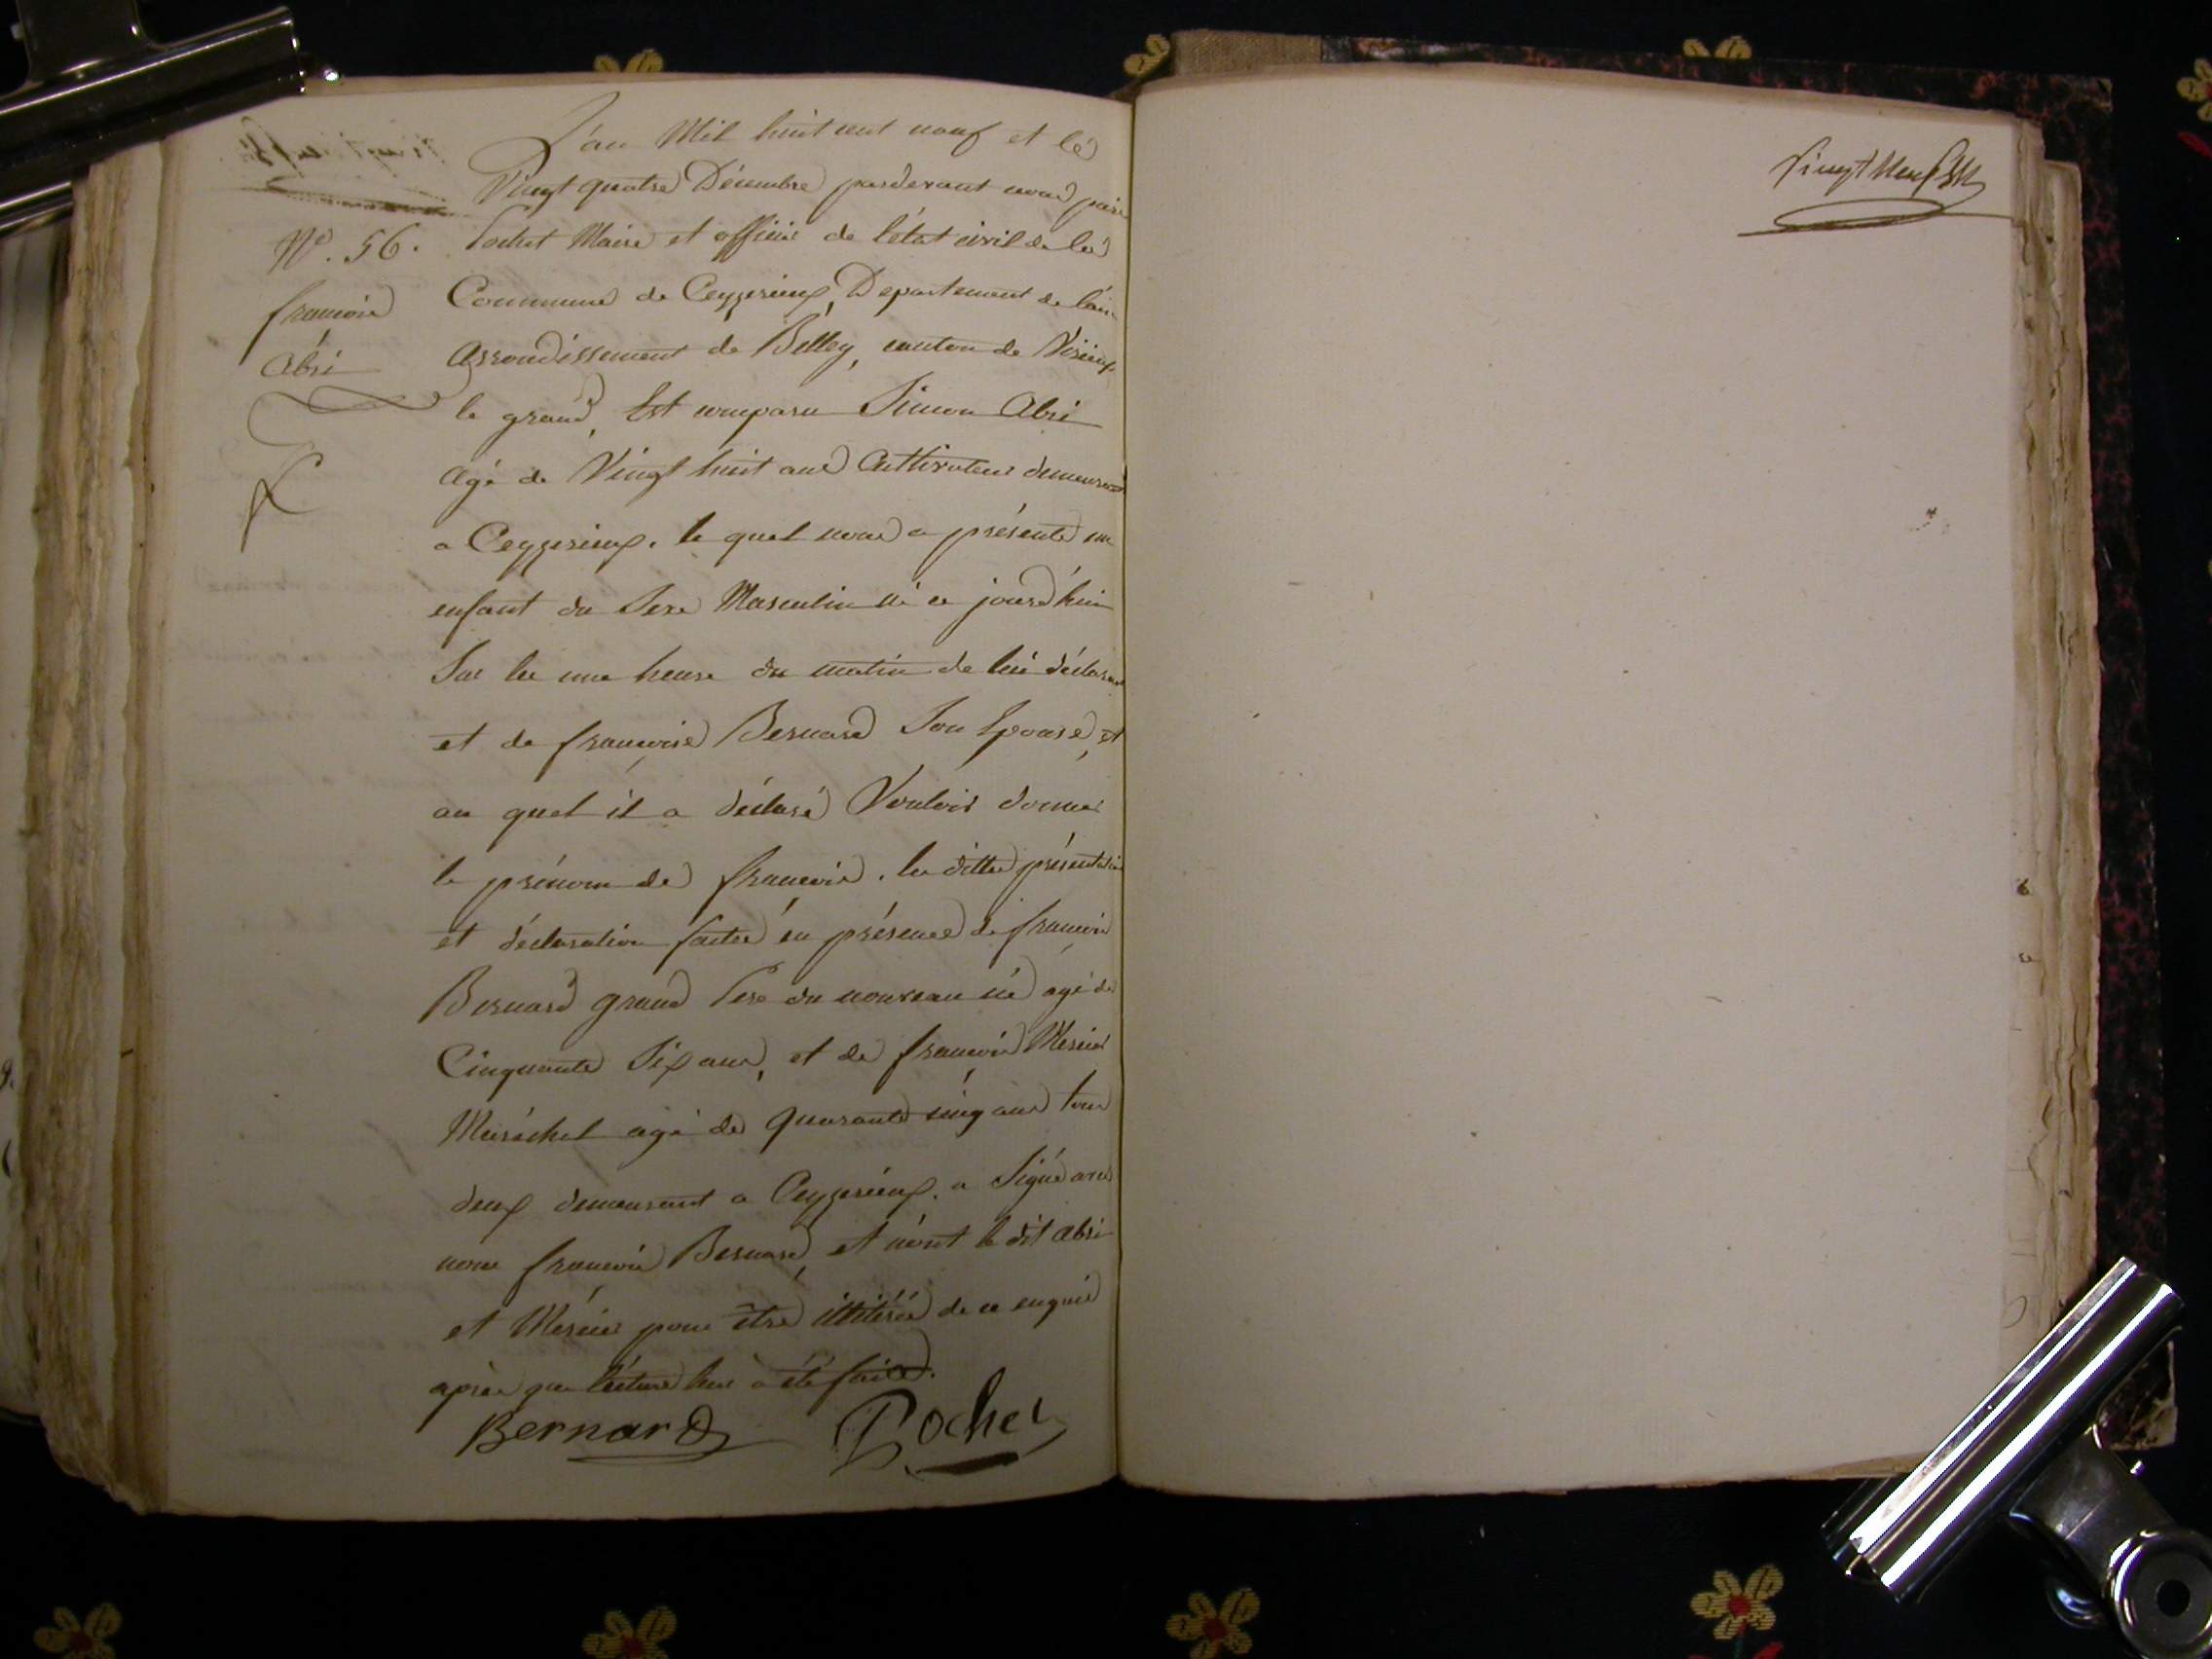 L'an Mil huit cent neuf et le
Vingt quatre Décembre pardevant nous
Pochet Maire et officier de l'état civil de la
N.º 56.
françois
Abri
Commune de Ceyzerieux, Departement de l'ain
Arrondissement de Belley, canton de Virieux
le grand, Est comparu Simon Abri
Agé de Vingt huit ans Cultivateur demeurant
a Ceyzerieux. le quel nous a présenté un
enfant du Sexe Masculin né ce jourd'hui
Sur les une heure du matin de lui déclarant
et de françoise Bernard Son Epouse, et
au quel il a déclaré Vouloir donner
le prénom de françois. les dittes présentation
et déclaration faites en présence de françois
Bernard grand Pere du nouveau né agé de
Cinquante Six ans, et de françois Mercier
Maréchal agé de quarante cinq ans tous
deux demeurant a Ceyzerieux. a Signé avec
nous françois Bernard, et nont le dit Abri
et Mercier pour être illitérés de ce enquis
après que lecture leur à été faite.
Bernard Pochet
Vingt Neuf